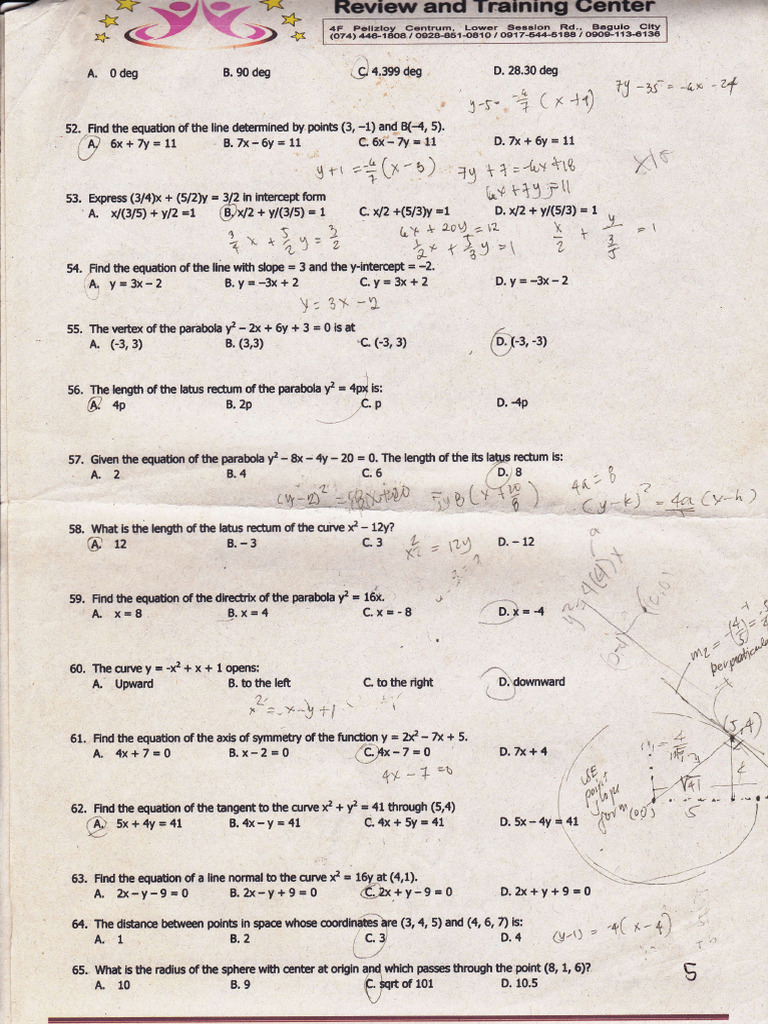 Review and Training Center
4F Pelizloy Centrum, Lower Session Rd., Baguio City
(074) 446-1808 / 0928-851-0810 / 0917-544-5188 / 0909-113-6136
A. 0 deg B. 90 deg C. 4.399 deg D. 28.30 deg
7y - 35 = -6x - 24
y - 5 = -6/7 (x + 4)
52. Find the equation of the line determined by points (3, –1) and B(–4, 5).
A. 6x + 7y = 11 B. 7x – 6y = 11 C. 6x – 7y = 11 D. 7x + 6y = 11
y + 1 = -6/7 (x - 3) 7y + 7 = -6x + 18
6x + 7y = 11
53. Express (3/4)x + (5/2)y = 3/2 in intercept form
A. x/(3/5) + y/2 =1 B. x/2 + y/(3/5) = 1 C. x/2 +(5/3)y =1 D. x/2 + y/(5/3) = 1
3/4 x + 5/2 y = 3/2 6x + 20y = 12 x/2 + y/(3/5) = 1
1/2 x + 5/3 y = 1
54. Find the equation of the line with slope = 3 and the y-intercept = –2.
A. y = 3x – 2 B. y = –3x + 2 C. y = 3x + 2 D. y = –3x – 2
y = 3x - 2
55. The vertex of the parabola y² – 2x + 6y + 3 = 0 is at
A. (-3, 3) B. (3,3) C. (-3, 3) D. (-3, -3)
56. The length of the latus rectum of the parabola y² = 4px is:
A. 4p B. 2p C. p D. -4p
57. Given the equation of the parabola y² – 8x – 4y – 20 = 0. The length of the its latus rectum is:
A. 2 B. 4 C. 6 D. 8
4a = 8
(y - k)² = 4a (x - h)
58. What is the length of the latus rectum of the curve x² – 12y?
A. 12 B. – 3 C. 3 D. – 12
x² = 12y
59. Find the equation of the directrix of the parabola y² = 16x.
A. x = 8 B. x = 4 C. x = - 8 D. x = -4
y² = 4(4)x
60. The curve y = -x² + x + 1 opens:
A. Upward B. to the left C. to the right D. downward
x² = -x - y + 1
61. Find the equation of the axis of symmetry of the function y = 2x² – 7x + 5.
A. 4x + 7 = 0 B. x – 2 = 0 C. 4x – 7 = 0 D. 7x + 4
4x - 7 = 0
(5,4)
USE point slope form
√41
(0,0) 5
62. Find the equation of the tangent to the curve x² + y² = 41 through (5,4)
A. 5x + 4y = 41 B. 4x – y = 41 C. 4x + 5y = 41 D. 5x – 4y = 41
63. Find the equation of a line normal to the curve x² = 16y at (4,1).
A. 2x – y – 9 = 0 B. 2x – y + 9 = 0 C. 2x + y – 9 = 0 D. 2x + y + 9 = 0
64. The distance between points in space whose coordinates are (3, 4, 5) and (4, 6, 7) is:
A. 1 B. 2 C. 3 D. 4
(y-1) = -4(x - 4)
65. What is the radius of the sphere with center at origin and which passes through the point (8, 1, 6)?
A. 10 B. 9 C. sqrt of 101 D. 10.5
5